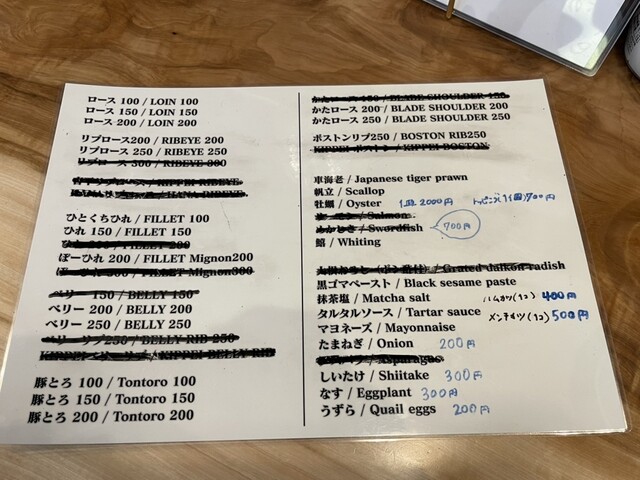 ロース 100 / LOIN 100
ロース 150 / LOIN 150
ロース 200 / LOIN 200
リブロース200 / RIBEYE 200
リブロース 250 / RIBEYE 250
リブロース 300 / RIBEYE 300
/ KIPPEI RIBEYE
/ HANA RIBEYE
ひとくちひれ / FILLET 100
ひれ 150 / FILLET 150
ひれ 200 / FILLET 200
ぼーひれ 200 / FILLET Mignon200
ぼーひれ 300 / FILLET Mignon300
ベリー 150 / BELLY 150
ベリー 200 / BELLY 200
ベリー 250 / BELLY 250
ベリーリブ250 / BELLY RIB 250
KIPPEIベリーリブ / KIPPEI BELLY RIB
豚とろ 100 / Tontoro 100
豚とろ 150 / Tontoro 150
豚とろ 200 / Tontoro 200
かたロース 150 / BLADE SHOULDER 150
かたロース 200 / BLADE SHOULDER 200
かたロース 250 / BLADE SHOULDER 250
ボストンリブ250 / BOSTON RIB250
KIPPEI ボストン / KIPPEI BOSTON
車海老 / Japanese tiger prawn
帆立 / Scallop
牡蠣 / Oyster 1皿 2000円 トッピング(1個)700円
サーモン / Salmon
めかじき / Swordfish 700円
鱚 / Whiting
大根おろし (ポン酢付) / Grated daikon radish
黒ゴマペースト / Black sesame paste
抹茶塩 / Matcha salt ハムカツ(1コ) 400円
タルタルソース / Tartar sauce メンチカツ(1コ) 500円
マヨネーズ / Mayonnaise
たまねぎ / Onion 200円
アスパラ / Asparagus
しいたけ / Shiitake 300円
なす / Eggplant 300円
うずら / Quail eggs 200円